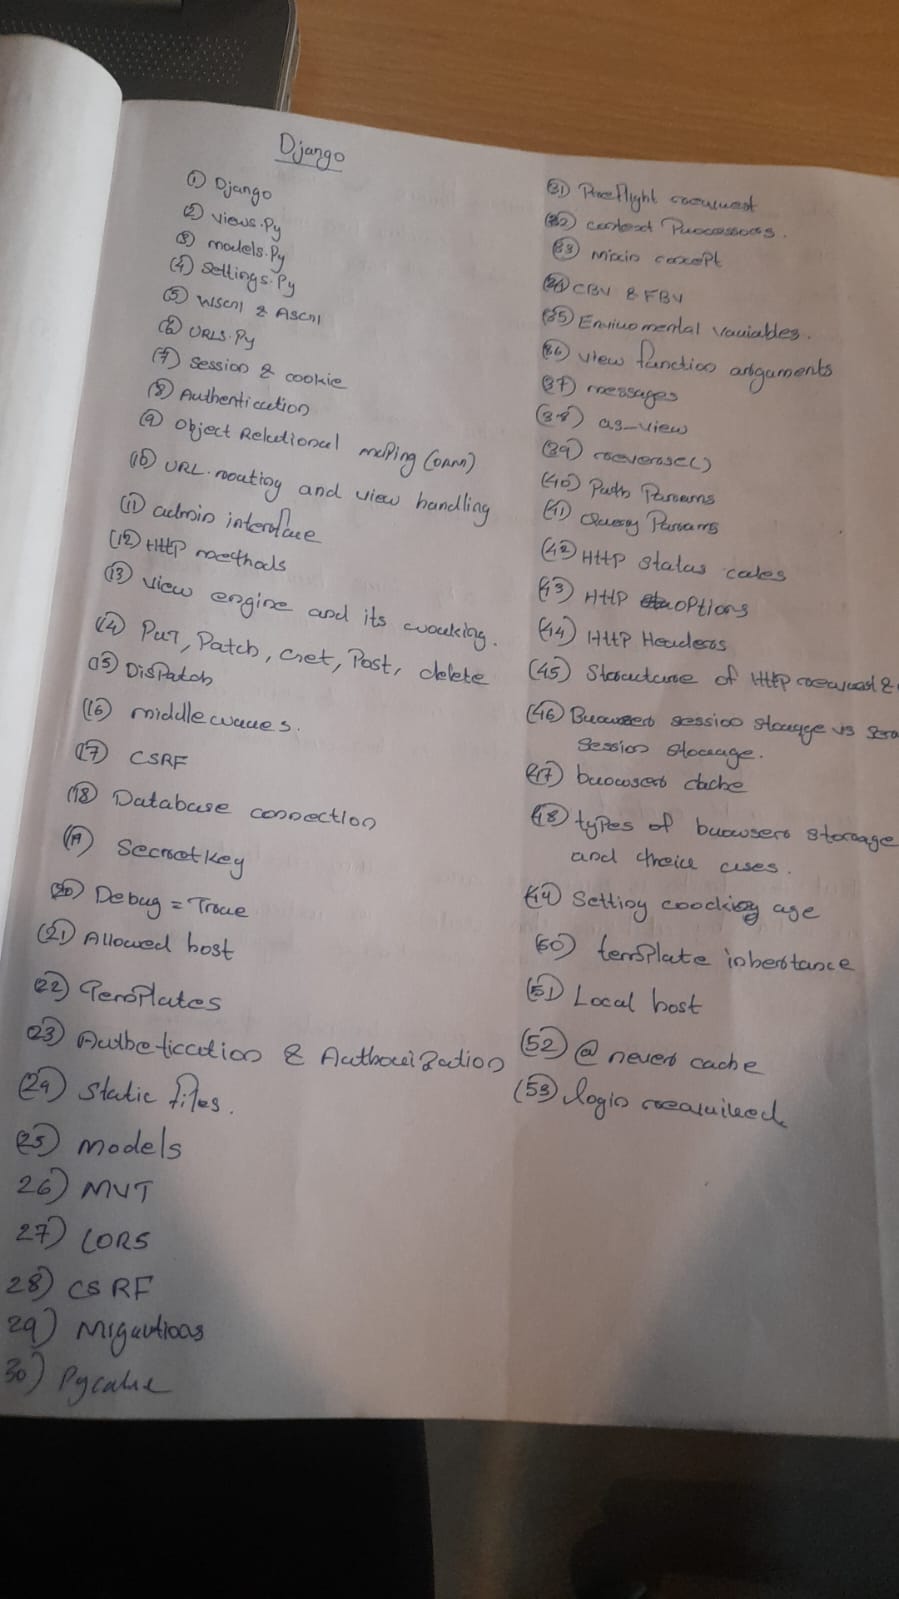 Django
① Django
② views.Py
③ models.Py
(4) Settings.Py
⑤ WSGI & ASGI
⑥ URLS.Py
⑦ Session & cookie
⑧ Authentication
⑨ Object Relational maping (ORM)
(10) URL routing and view handling
⑪ admin interface
(12) HTTP methods
⑬ view engine and its working.
⑭ Put, Patch, Get, Post, delete
(15) Dispatch
(16) middlewares.
(17) CSRF
(18) Database connection
(19) Secretkey
(20) Debug = True
(21) Allowed host
22) Templates
23) Authetication & Authorization
(24) Static files.
25) models
26) MVT
27) CORS
28) CSRF
29) Migrations
30) Pycache
31) Preflight request
(32) context Processors.
(33) Mixin concept
(34) CBV & FBV
(35) Enviromental variables.
(36) view function arguments
(37) messages
(38) as_view
(39) reverse()
(40) Path Params
(41) Query Params
(42) HTTP status codes
(43) HTTP options
(44) HTTP Headers
(45) Structure of HTTP request &
(46) Browser session storage vs
Session storage.
(47) browser cache
(48) types of browser storage
and their uses.
(49) Setting age
(50) template inheritance
(51) Local host
(52) @ never cache
(53) login required